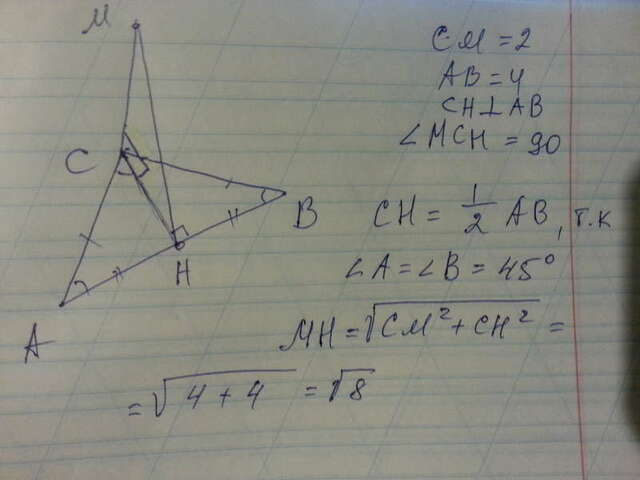 M
C
B
H
A
CM = 2
AB = 4
CH ⊥ AB
∠MCH = 90
CH = 1/2 AB, т.к
∠A = ∠B = 45°
MH = √CM² + CH² =
= √4 + 4 = √8